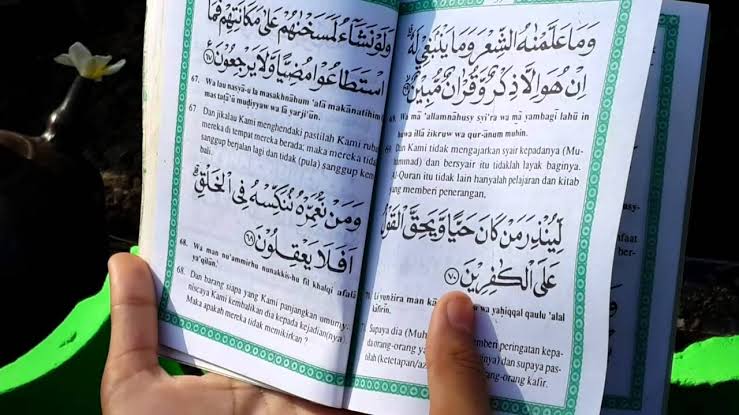 وَلَوْ نَشَآءُ لَمَسَخْنٰهُمْ عَلٰى مَكَانَتِهِمْ فَمَا
اسْتَطَاعُوْا مُضِيًّا وَّلَا يَرْجِعُوْنَ ﴿٦٧﴾
67. Wa lau nasyā-u la masakhnāhum 'alā makānatihim
mas taṭā'ū muḍiyyaw wa lā yarji'ūn.
67 Dan jikalau Kami menghendaki pastilah Kami rubah
mereka di tempat mereka berada; maka mereka tidak
sanggup berjalan lagi dan tidak (pula) sanggup kem
bali.
وَمَنْ نُّعَمِّرْهُ نُنَكِّسْهُ فِى الْخَلْقِ
اَفَلَا يَعْقِلُوْنَ ﴿٦٨﴾
68. Wa man nu'ammirhu nunakkis-hu fil khalqi afalā
ya'qilūn.
68. Dan barang siapa yang Kami panjangkan umurnya
niscaya Kami kembalikan dia kepada kejadian(nya).
Maka apakah mereka tidak memikirkan ?
وَمَا عَلَّمْنٰهُ الشِّعْرَ وَمَا يَنْۢبَغِيْ لَهٗ
اِنْ هُوَ اِلَّا ذِكْرٌ وَّقُرْاٰنٌ مُّبِيْنٌ ﴿٦٩﴾
69. Wa mā 'allamnāhusy syi'ra wa mā yambagī lahū in
huwa illā żikruw wa qur-ānum mubīn.
69. Dan Kami tidak mengajarkan syair kepadanya (Mu-
hammad) dan bersyair itu tidaklah layak baginya.
Al-Quran itu tidak lain hanyalah pelajaran dan kitab
yang memberi penerangan.
لِّيُنْذِرَ مَنْ كَانَ حَيًّا وَّيَحِقَّ الْقَوْلُ
عَلَى الْكٰفِرِيْنَ ﴿٧٠﴾
70. Li yunżira man kā wa yaḥiqqal qaulu 'alal
kāfirīn.
Supaya dia (Muh memberi peringatan kepa-
da orang-orang ya nya) dan supaya pas-
tilah (ketetapan/az orang-orang kafir.
nfaat
ber-